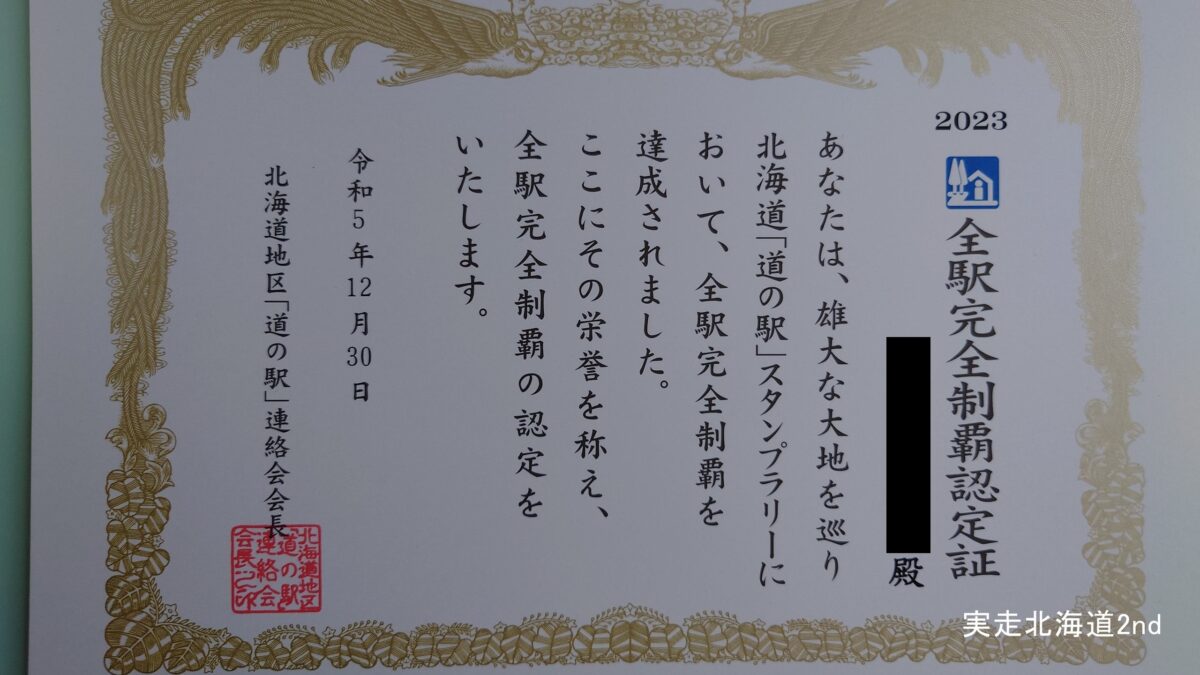 2023
全駅完全制覇認定証
殿
あなたは、雄大な大地を巡り
北海道「道の駅」スタンプラリーに
おいて、全駅完全制覇を
達成されました。
ここにその栄誉を称え、
全駅完全制覇の認定を
いたします。
令和5年12月30日
北海道地区「道の駅」連絡会会長
北海道地区
「道の駅」
連絡会
会長
実走北海道2nd